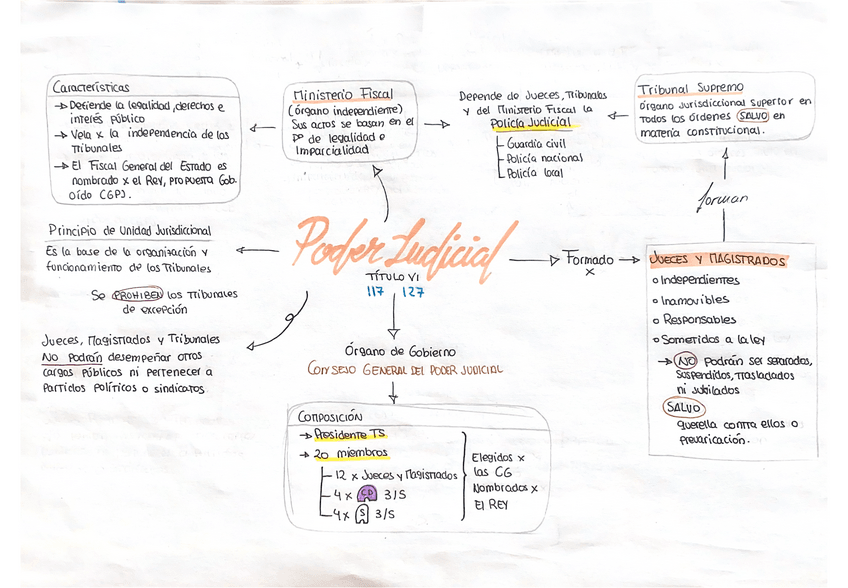 Características
→ Defiende la legalidad, derechos e
interés público
→ Vela x la independencia de los
Tribunales
→ El Fiscal General del Estado es
nombrado x el Rey, propuesta Gob.
Oído CGPJ.
Ministerio Fiscal
(Órgano independiente)
Sus actos se basan en el
Pº de legalidad e
Imparcialidad
Depende de Jueces, Tribunales
y del Ministerio Fiscal la
Policía Judicial
Guardia civil
Policía nacional
Policía local
Tribunal Supremo
Órgano Jurisdiccional Superior en
Todos los órdenes SALVO en
materia constitucional.
forman
Principio de Unidad Jurisdiccional
Es la base de la organización y
funcionamiento de los Tribunales
Se PROHIBEN los Tribunales
de excepción
Jueces, Magistrados y Tribunales
No Podrán desempeñar otros
cargos públicos ni pertenecer a
Partidos Políticos o sindicatos
Poder Judicial
TÍTULO VI
117 127
Formado
x
JUECES Y MAGISTRADOS
o Independientes
o Inamovibles
o Responsables
o Sometidos a la ley
→ NO Podrán ser separados,
suspendidos, trasladados
ni jubilados
SALVO
querella contra ellos o
Prevaricación.
Órgano de Gobierno
CONSEJO GENERAL DEL PODER JUDICIAL
COMPOSICIÓN
→ Presidente TS
→ 20 miembros
12 x Jueces y Magistrados
4 x CD 3/5
4 x S 3/5
Elegidos x
las CG
Nombrados x
El REY